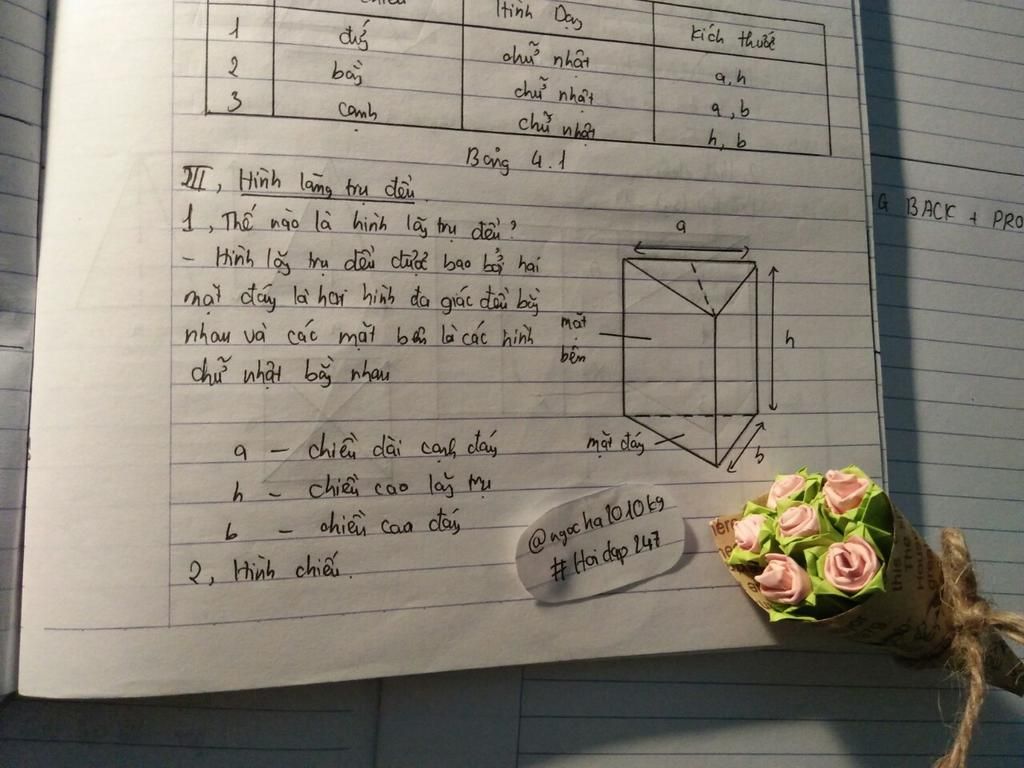 Hình Dạng
Kích thước
1 đứg chữ nhật a, h
2 bằg chữ nhật a, b
3 cạnh chữ nhật h, b
Bảng 4.1
III, Hình lăng trụ đều
1, Thế nào là hình lăg trụ đều?
- Hình lăg trụ đều được bao bởi hai
mặt đáy là hai hình đa giác đều bằg
nhau và các mặt bên là các hình
chữ nhật bằg nhau
a
h
b
mặt
bên
mặt đáy
a - chiều dài cạnh đáy
h - chiều cao lăg trụ
b - chiều cao đáy
2, Hình chiếu.
@ngocha1010kg
#Hoidap247
G BACK + PRO